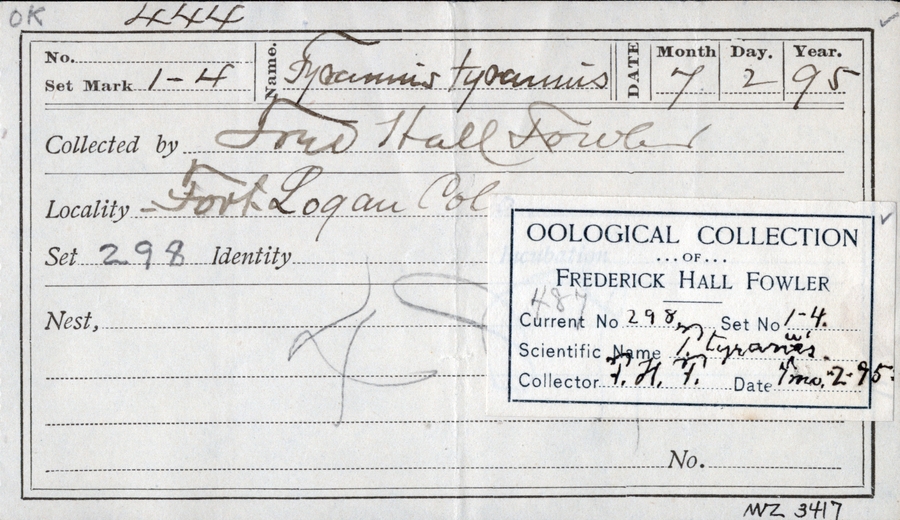 OK 444
No. Name. Tyrannus tyrannus DATE Month Day. Year.
Set Mark 1-4 7 2 95
Collected by Fred Hall Fowler
Locality Fort Logan Col
Set 298 Identity
Nest,
No.
OOLOGICAL COLLECTION
...OF...
FREDERICK HALL FOWLER
487
Current No 298 Set No 1-4.
Scientific Name T. tyrannus.
Collector F. H. F. Date 7mo. 2-95.
MVZ 3417